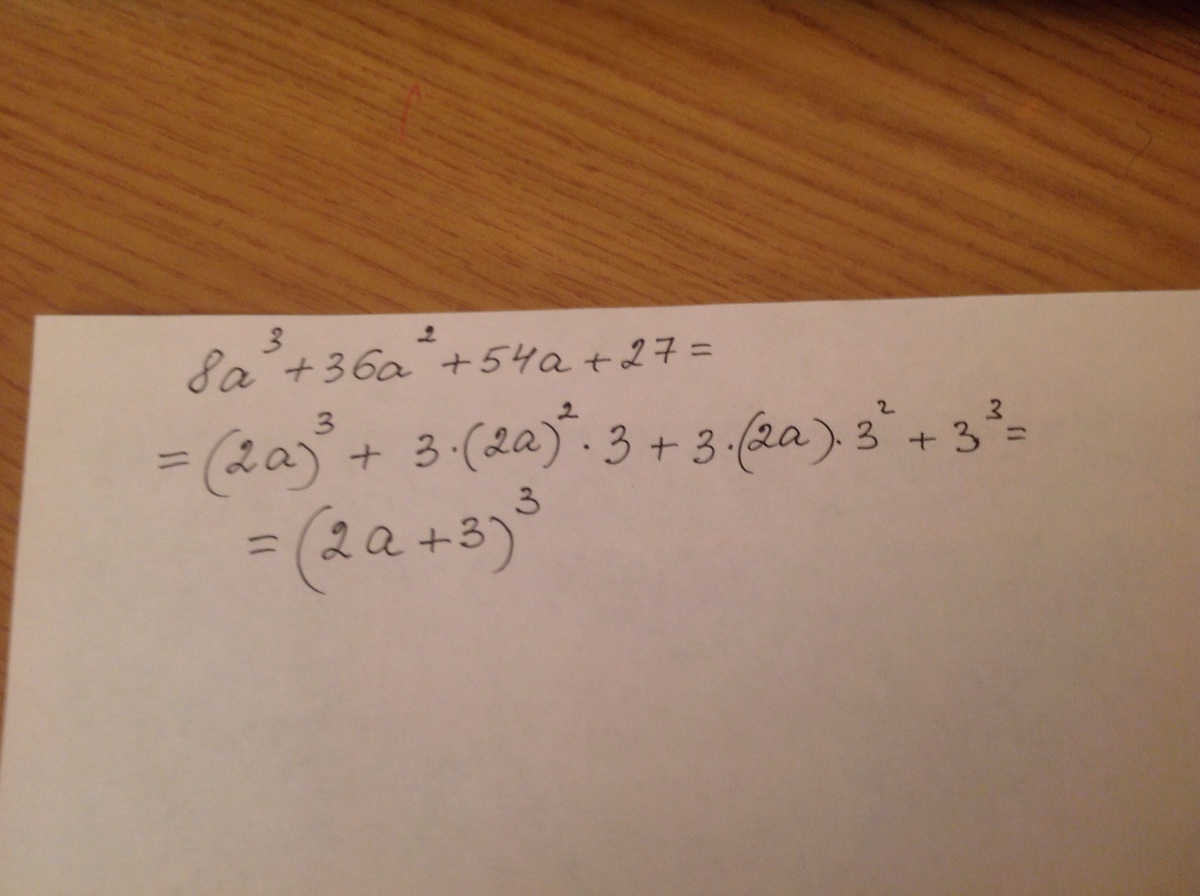 8a³ + 36a² + 54a + 27 =
= (2a)³ + 3·(2a)²·3 + 3·(2a)·3² + 3³ =
= (2a + 3)³